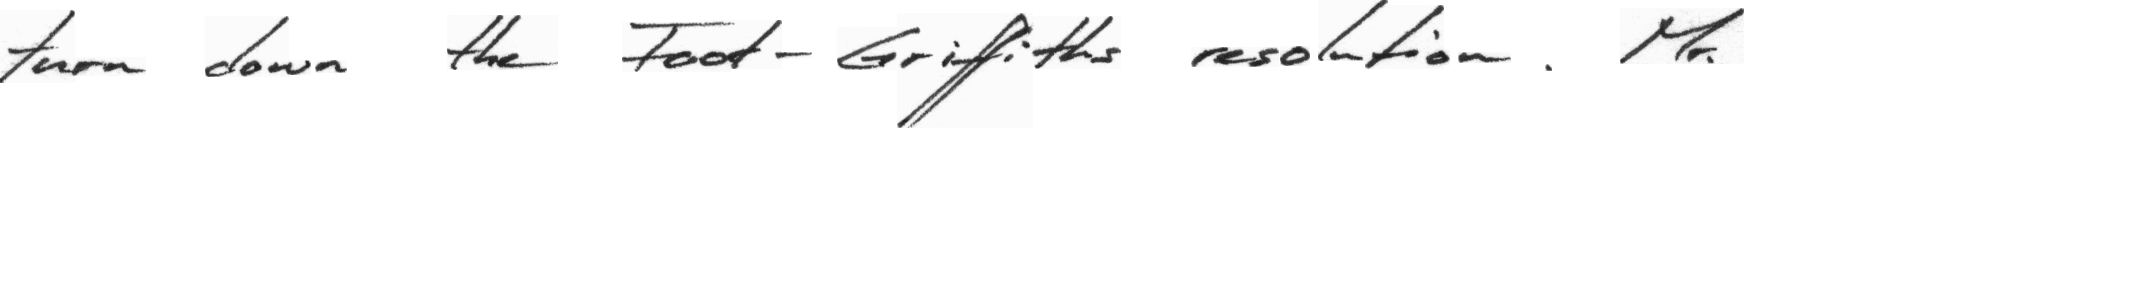 turn down the Foot-Griffiths resolution. Mr.